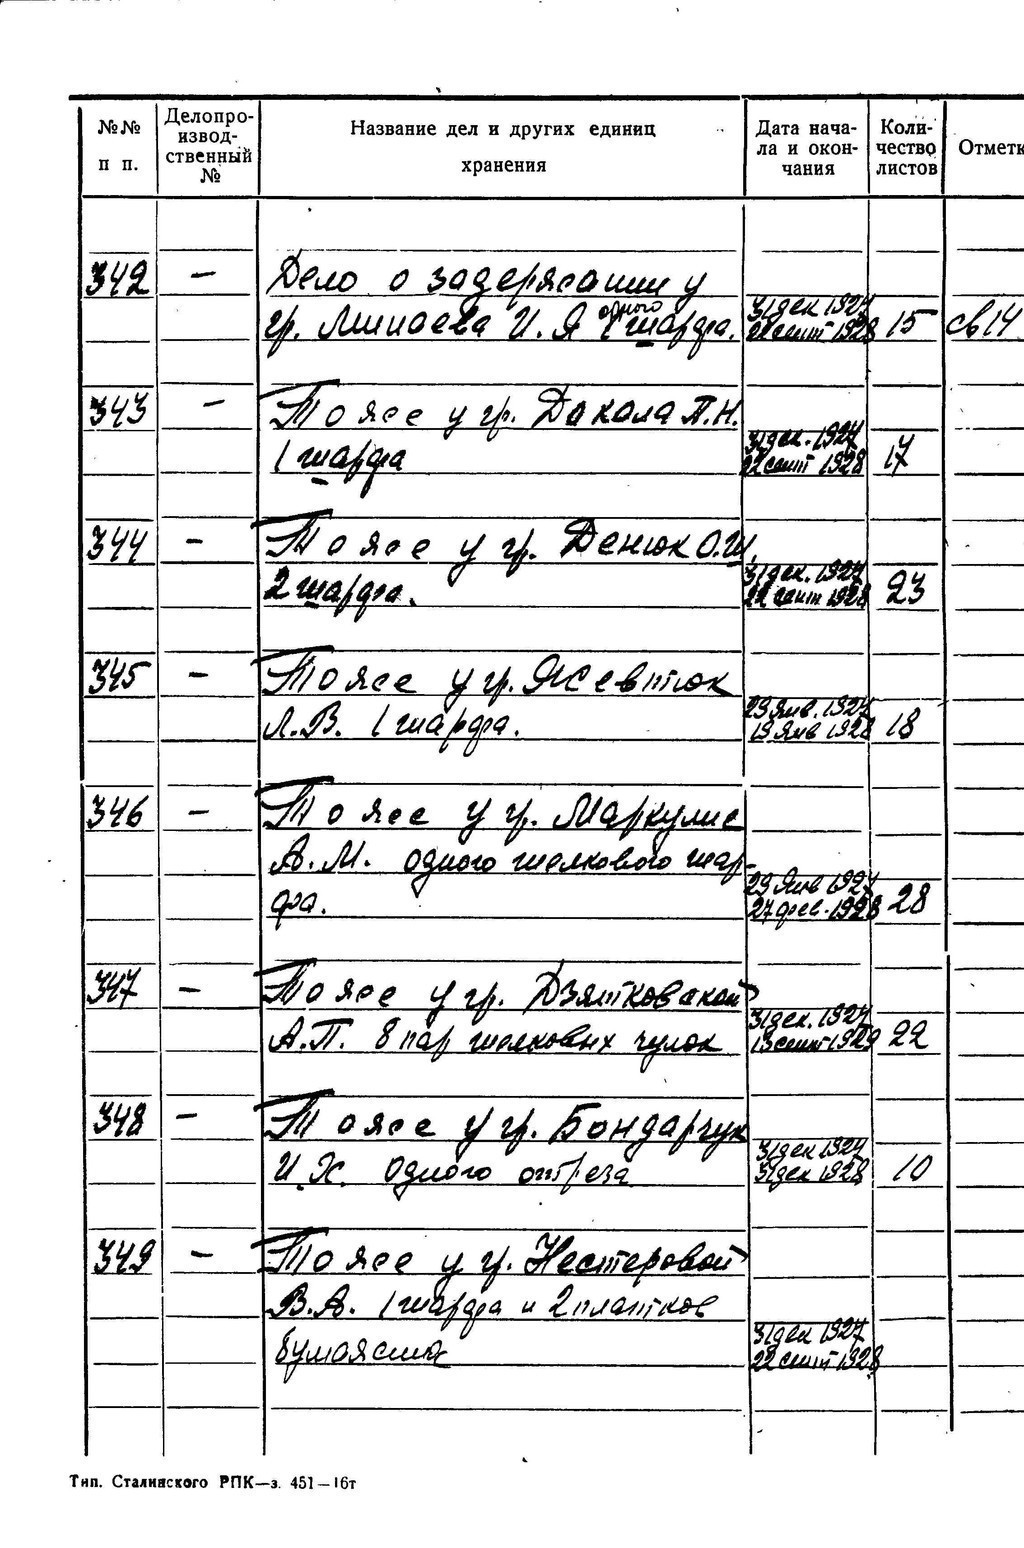 №№ п п.
Делопро-
извод-
ственный
№
Название дел и других единиц
хранения
Дата нача-
ла и окон-
чания
Коли-
чество
листов
Отметк
342 — Дело о задержании у
гр. Минаева И. Я. одного
1 шарфа. 31 дек 1927 22 сент 1928 15 св 14
343 — То же у гр. Дакала П.Н.
1 шарфа 31 дек. 1927 22 сент 1928 17
344 — То же у гр. Денюк О.Ш.
2 шарфа. 31 дек. 1927 22 сент 1928 23
345 — То же у гр. Жевтюк
Л.В. 1 шарфа. 29 янв. 1927 19 янв 1928 18
346 — То же у гр. Маркулис
А.М. одного шелкового шар-
фа. 29 янв 1927 27 фев. 1928 28
347 — То же у гр. Дзятковской
А.П. 8 пар шелковых чулок 31 дек. 1927 13 сент 1929 22
348 — То же у гр. Бондарчук
И.Х. одного отреза 31 дек 1927 31 дек 1928 10
349 — То же у гр. Нестеровой
В.А. 1 шарфа и 2 платков
бумажных 31 дек 1927 22 сент 1928
Тип. Сталинского РПК—з. 451—16т